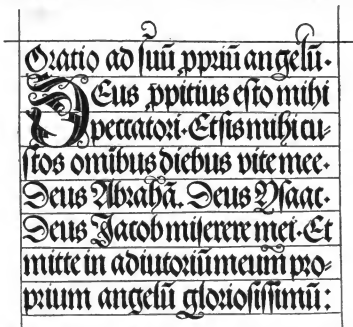 Oratio ad suū ꝓpriū angelū.
DEus ꝓpitius esto mihi
peccatori. Et sis mihi cu⸗
stos omībus diebus vite mee.
Deus Abrahā. Deus Ysaac.
Deus Jacob miserere mei. Et
mitte in adiutoriū meum pro⸗
prium angelū gloriosissimū: